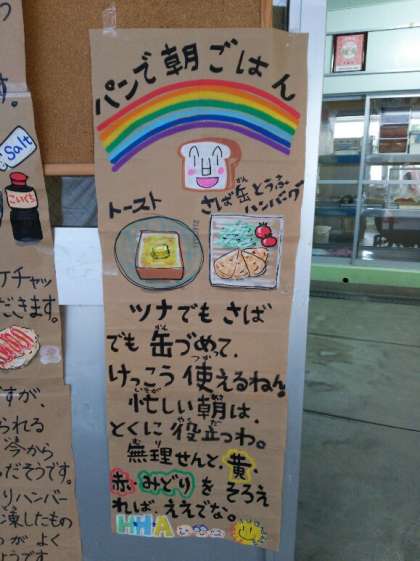 パンで朝ごはん
トースト
さば缶とうふ
ハンバーグ
ツナでもさば
でも缶づめって、
けっこう使えるねん。
忙しい朝は、
とくに役立つわ。
無理せんと、黄、
赤、みどりをそろえ
れば、ええでな。
HHA
Salt
こいくち
ケチャッ
だきます。
すが、
られる
今から
だそうです。
りハンバー
凍したもの
がよく
ようです